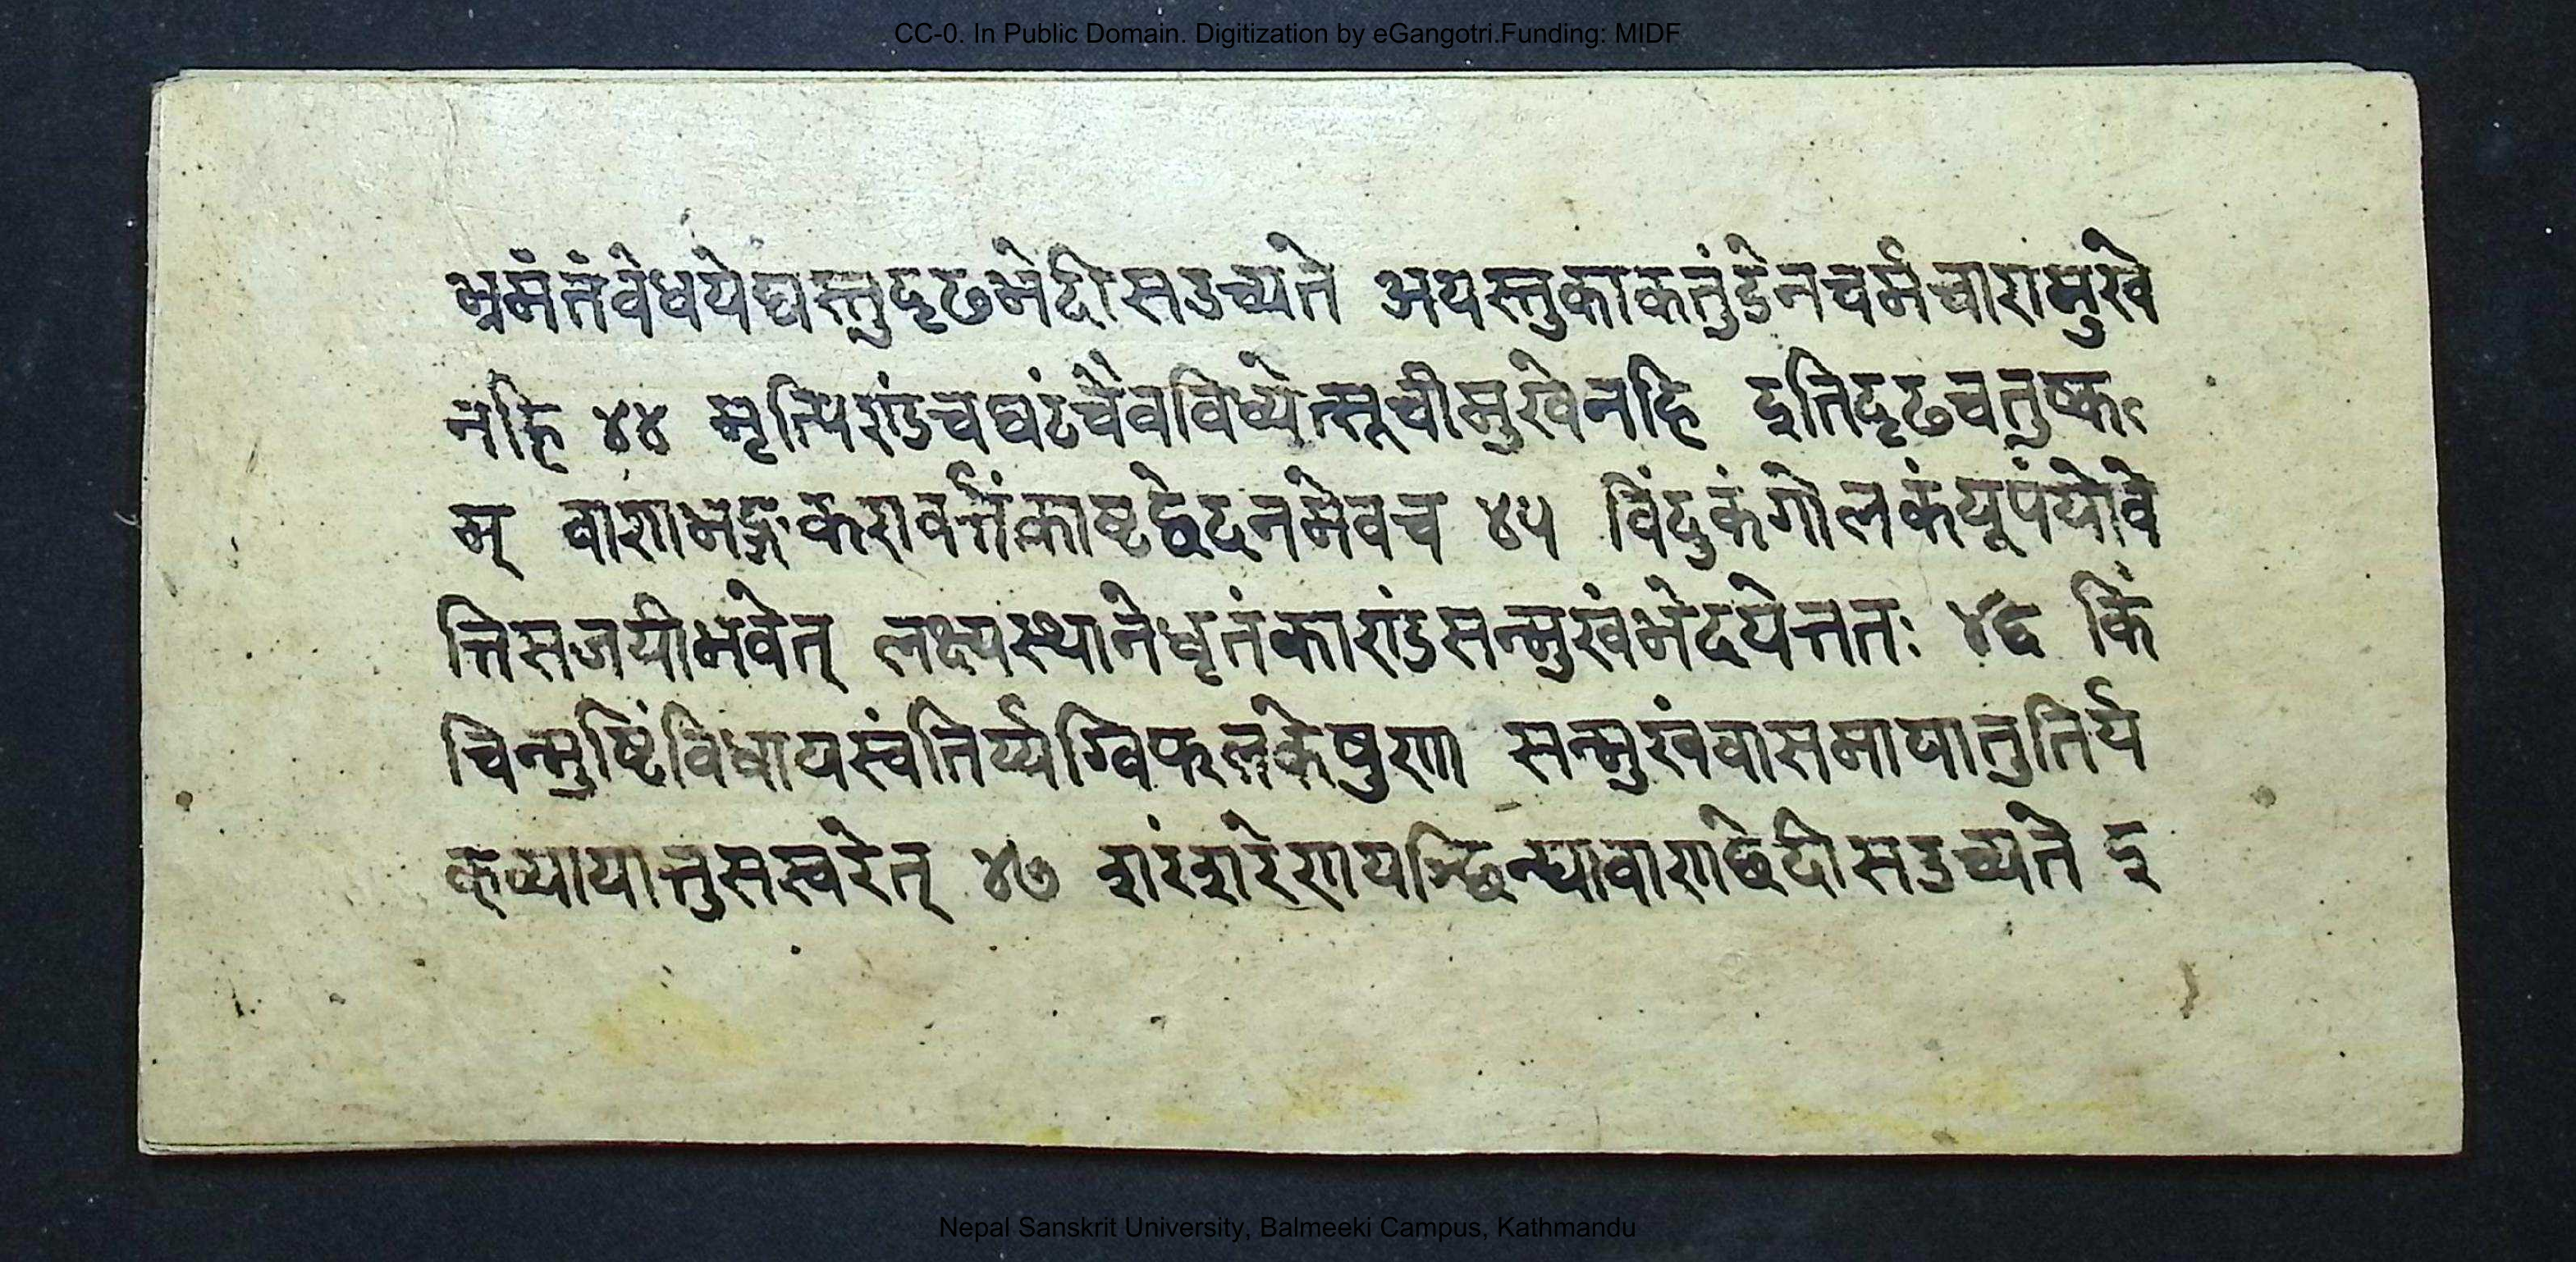 CC-0. In Public Domain. Digitization by eGangotri.Funding: MIDF
भ्रमंतंवेधयेद्यस्तुदृढभेदीसउच्यते अयस्तुकाकतुंडेनचर्मचारामुखे
नहि ४४ मृत्पिण्डंचघटंचैवविध्येत्सूचीमुखेनहि इतिदृढचतुष्क
म् वाणभङ्गकरावर्त्तंकाष्टछेदनमेवच ४५ विंदुकंगोलकंयूपंयोवे
त्तिसजयीभवेत् लक्ष्यस्थानेधृतंकाण्डंसन्मुखंभेदयेत्ततः ४६ किं
चिन्मुष्टिंविधायस्वंतिर्य्यग्विफलकेषुणा सन्मुखंवासमायातुतिर्य
क्व्यायात्तुसस्वरेत् ४७ शरंशरेणयश्छिन्द्यावाणछेदीसउच्यते इ
Nepal Sanskrit University, Balmeeki Campus, Kathmandu